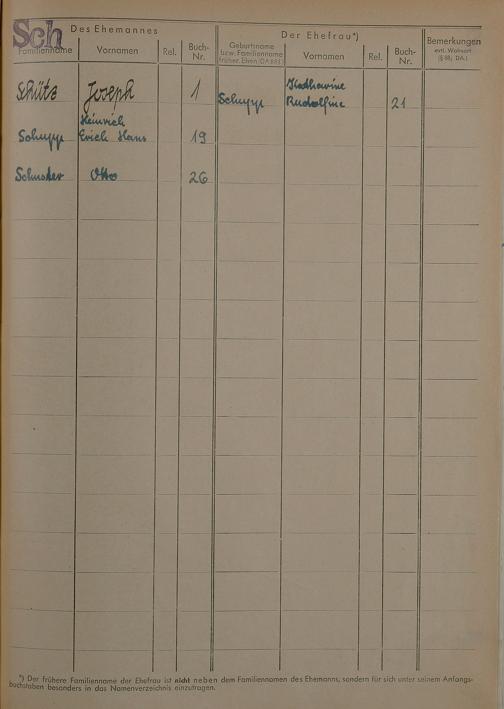 Sch
Des Ehemannes
Der Ehefrau*)
Familienname
Vornamen
Rel.
Buch-
Nr.
Geburtsname
bzw. Familienname
früher. Ehen (DA §85)
Vornamen
Rel.
Buch-
Nr.
Bemerkungen
evtl. Wohnort
(§ 88, DA.)
Schütz Joseph 1
Schupp Katharine
Rudolfine 21
Heinrich
Schupp Erich Hans 19
Schuster Otto 26
*) Der frühere Familienname der Ehefrau ist nicht neben dem Familiennamen des Ehemanns, sondern für sich unter seinem Anfangs-
buchstaben besonders in das Namenverzeichnis einzutragen.